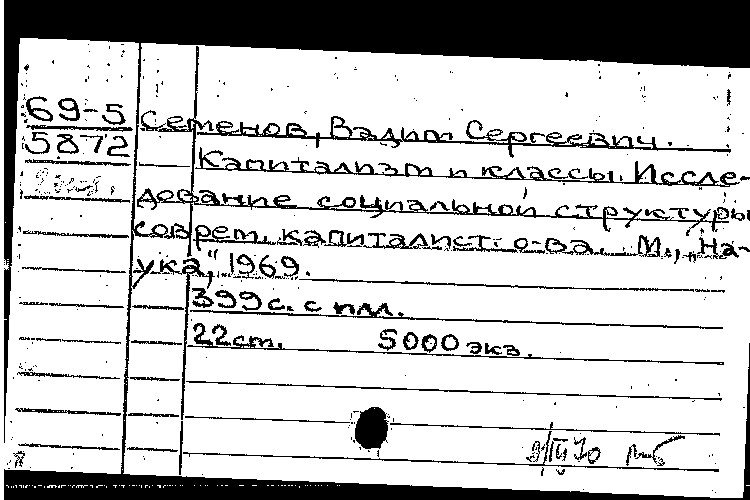 69-5 Семенов, Вадим Сергеевич.
5872
Капитализм и классы. Иссле-
дование социальной структуры
соврем. капиталист. о-ва. М., „На-
ука," 1969.
399 с. с илл.
22 см. 5000 экз.
9/IV 70